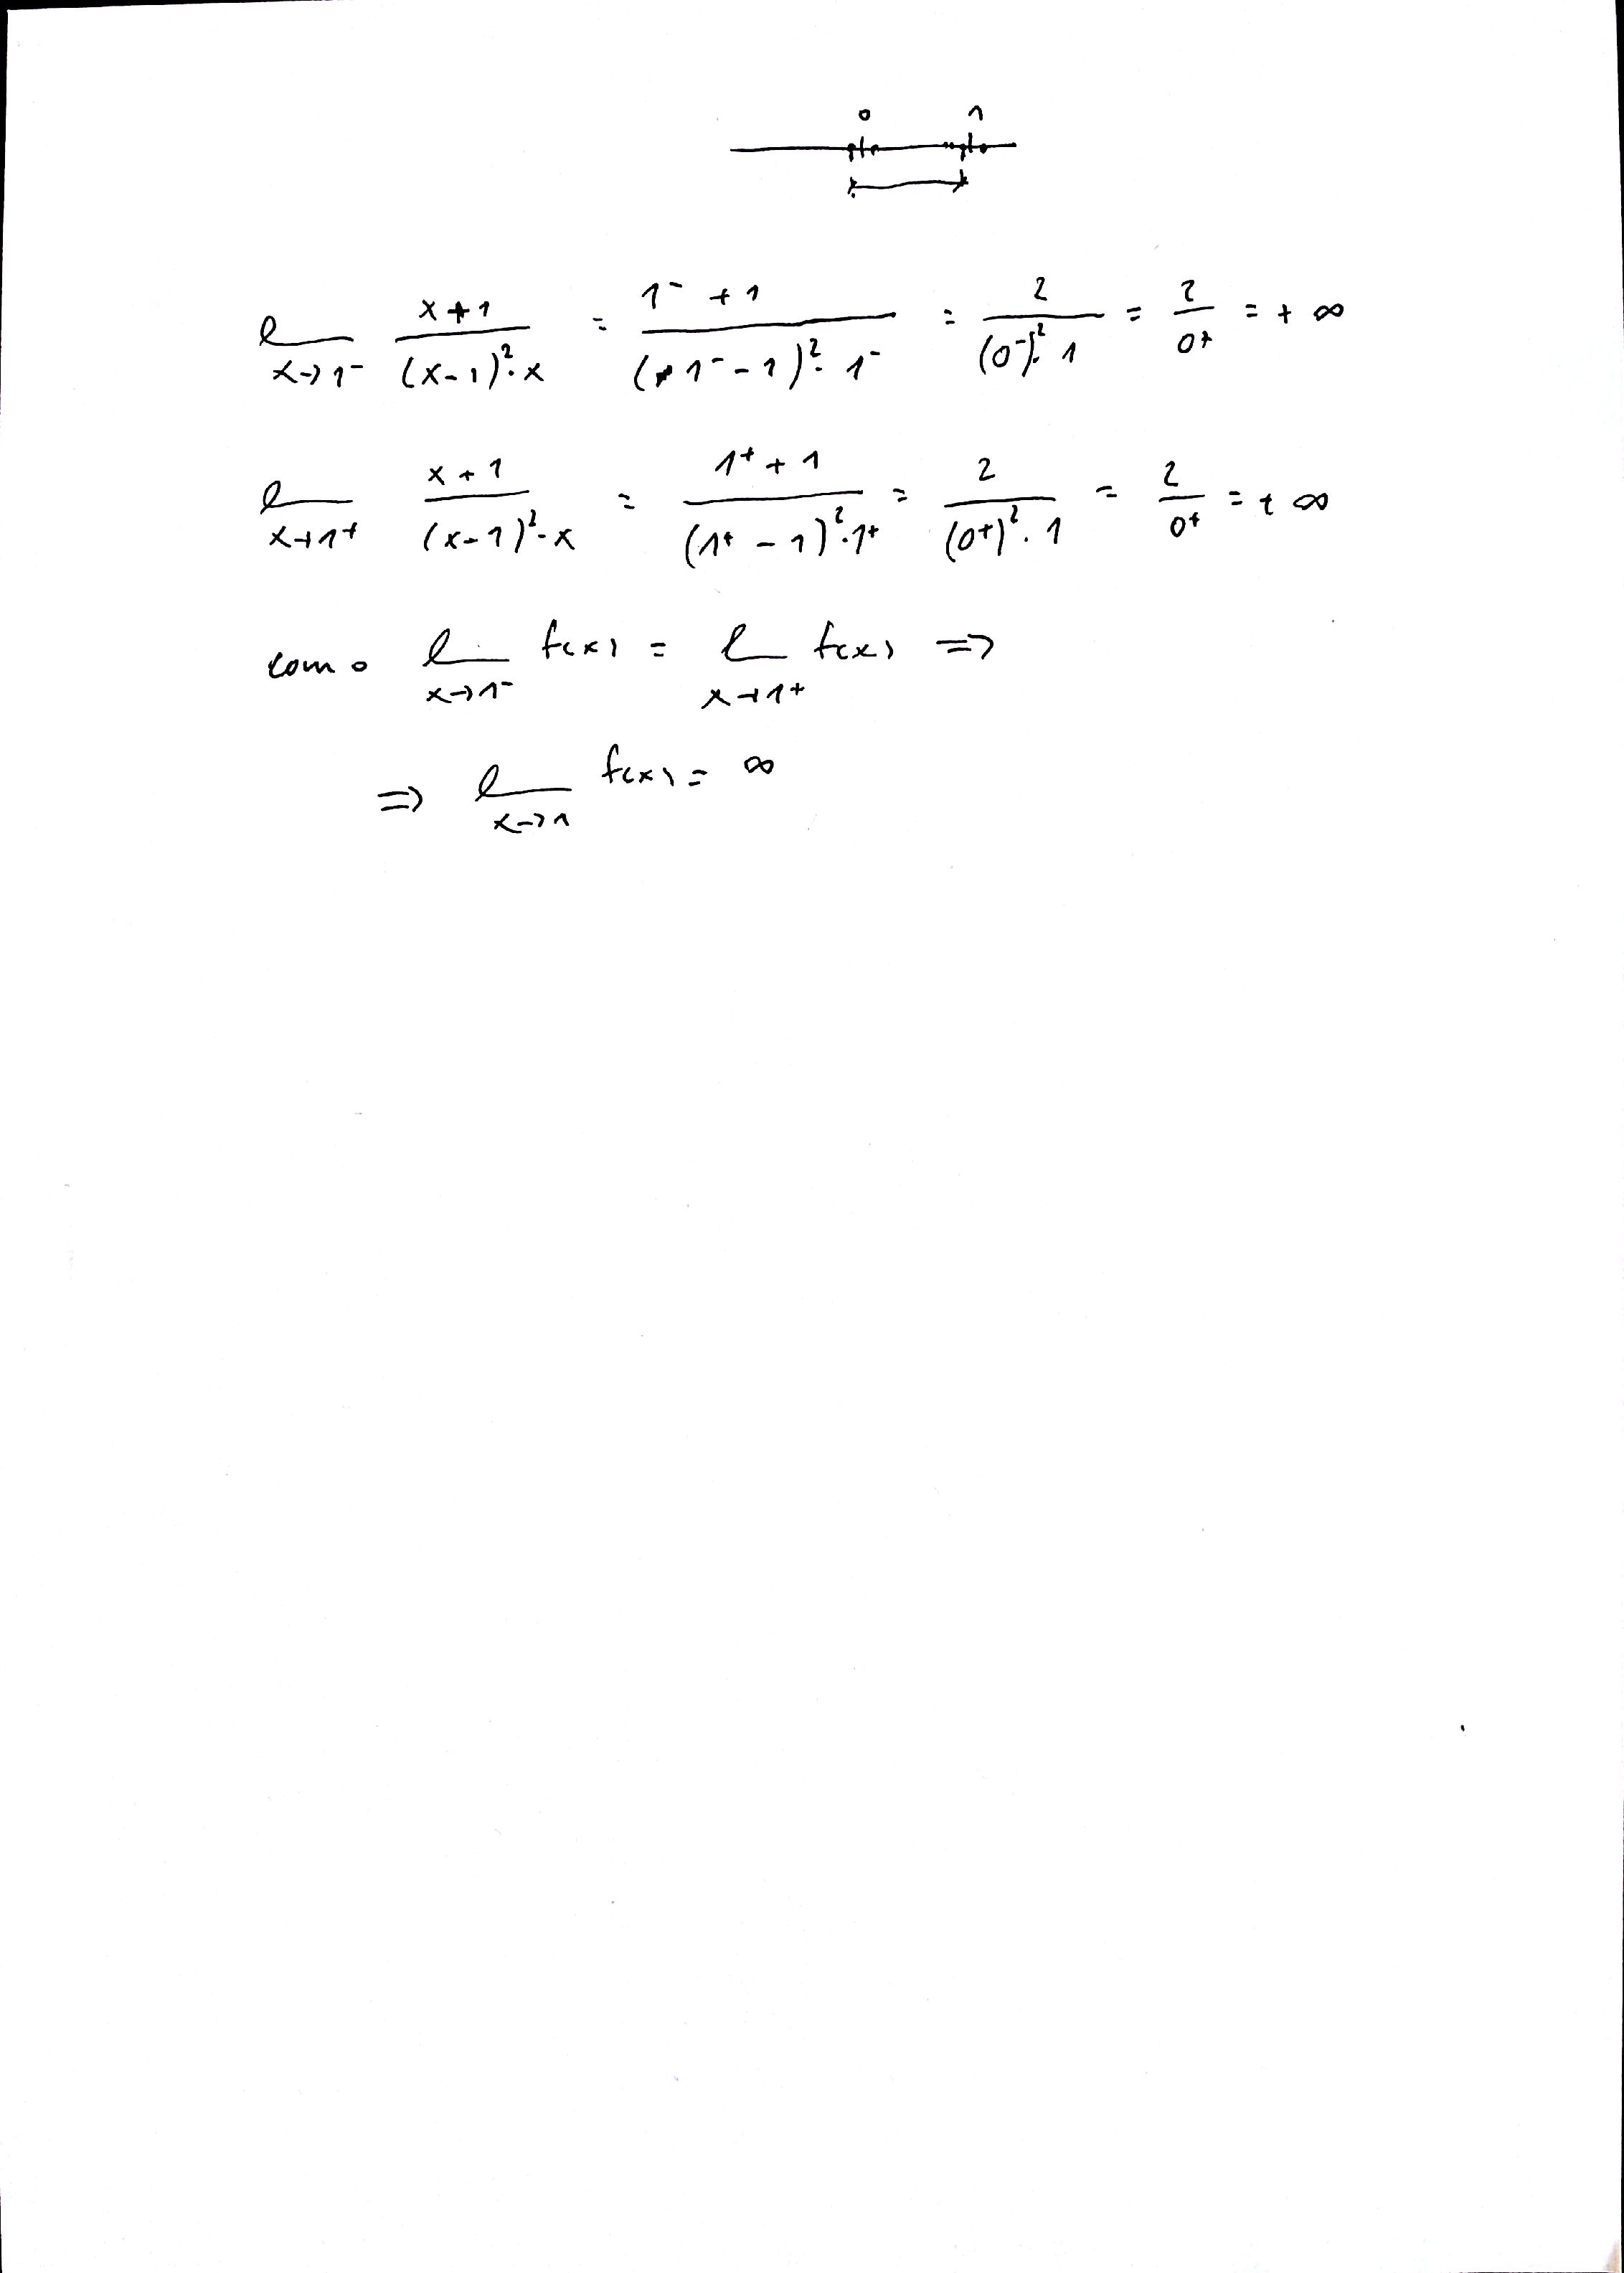 0 1
lim x→1⁻ (x+1)/((x-1)²·x) = (1⁻+1)/((1⁻-1)²·1⁻) = 2/((0⁻)²·1) = 2/0⁺ = +∞
lim x→1⁺ (x+1)/((x-1)²·x) = (1⁺+1)/((1⁺-1)²·1⁺) = 2/((0⁺)²·1) = 2/0⁺ = +∞
como lim x→1⁻ f(x) = lim x→1⁺ f(x) =>
=> lim x→1 f(x) = ∞